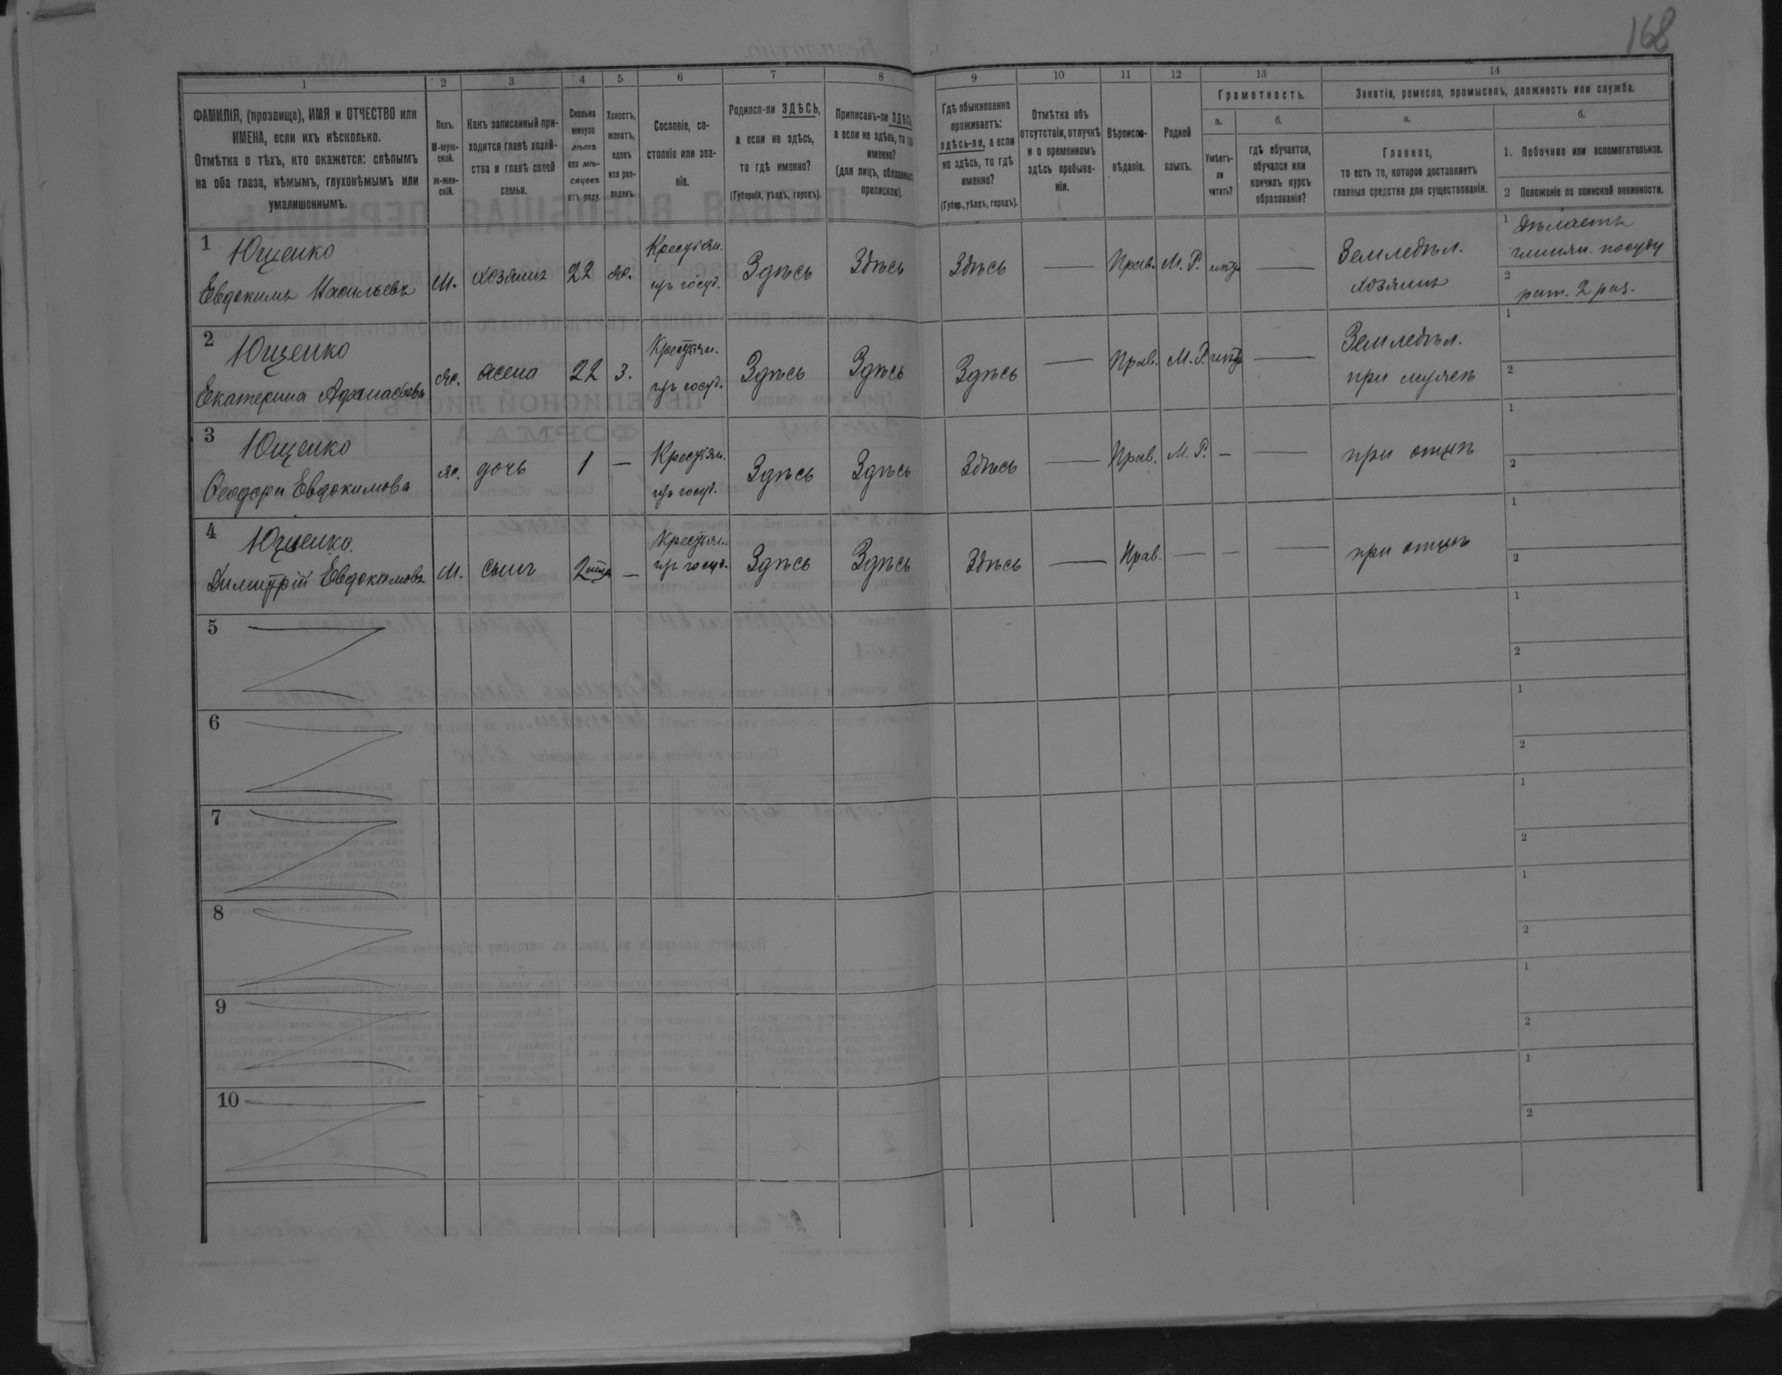 168
1 2 3 4 5 6 7 8 9 10 11 12 13 14
ФАМИЛІЯ, (прозвище), ИМЯ и ОТЧЕСТВО или
ИМЕНА, если ихъ нѣсколько.
Отмѣтка о тѣхъ, кто окажется: слѣпымъ
на оба глаза, нѣмымъ, глухонѣмымъ или
умалишоннымъ.
Полъ.
М-муж-
ской.
Ж-жен-
скій.
Какъ записанный при-
ходится главѣ хозяй-
ства и главѣ своей
семьи.
Сколько
минуло
лѣтъ
или мѣ-
сяцевъ
отъ роду.
Холостъ,
женатъ,
вдовъ
или раз-
веденъ.
Сословіе, со-
стояніе или зва-
ніе.
Родился-ли ЗДѢСЬ,
а если не здѣсь,
то гдѣ именно?
(Губернія, уѣздъ, городъ).
Приписанъ-ли ЗДѢСЬ,
а если не здѣсь, то гдѣ
именно?
(для лицъ, обязанныхъ
припискою).
Гдѣ обыкновенно
проживаетъ:
здѣсь-ли, а если
не здѣсь, то гдѣ
именно?
(Губер., уѣздъ, городъ).
Отмѣтка объ
отсутствіи, отлучкѣ
и о временномъ
здѣсь пребыва-
ніи.
Вѣроиспо-
вѣданіе.
Родной
языкъ.
Грамотность.
а.
Умѣетъ-
ли
читать?
б.
гдѣ обучается,
обучался или
кончилъ курсъ
образованія?
Занятія, ремесло, промыселъ, должность или служба.
а.
Главное,
то есть то, которое доставляетъ
главныя средства для существованія.
б.
1. Побочное или вспомогательное.
2 Положеніе по воинской повинности.
1 Ющенко
Евдокимъ Васильевъ М. хозяинъ 22 ж. Крестьян. изъ госуд. Здѣсь Здѣсь Здѣсь — Прав. М. Р. нѣтъ — Земледѣл. хозяинъ
1 Дѣлаетъ
глинян. посуду
2 рат. 2 раз.
2 Ющенко
Екатерина Афанасьева ж. жена 22 з. Крестьян. изъ госуд. Здѣсь Здѣсь Здѣсь — Прав. М. Р. нѣтъ — Земледѣл. при мужѣ
1
2
3 Ющенко
Ѳеодора Евдокимова ж. дочь 1 — Крестьян. изъ госуд. Здѣсь Здѣсь Здѣсь — Прав. М. Р. — — при отцѣ
1
2
4 Ющенко.
Димитрій Евдокимовъ М. сынъ — Крестьян. изъ госуд. Здѣсь Здѣсь Здѣсь — Прав. — — — при отцѣ
1
2
5
1
2
6
1
2
7
1
2
8
1
2
9
1
2
10
1
2